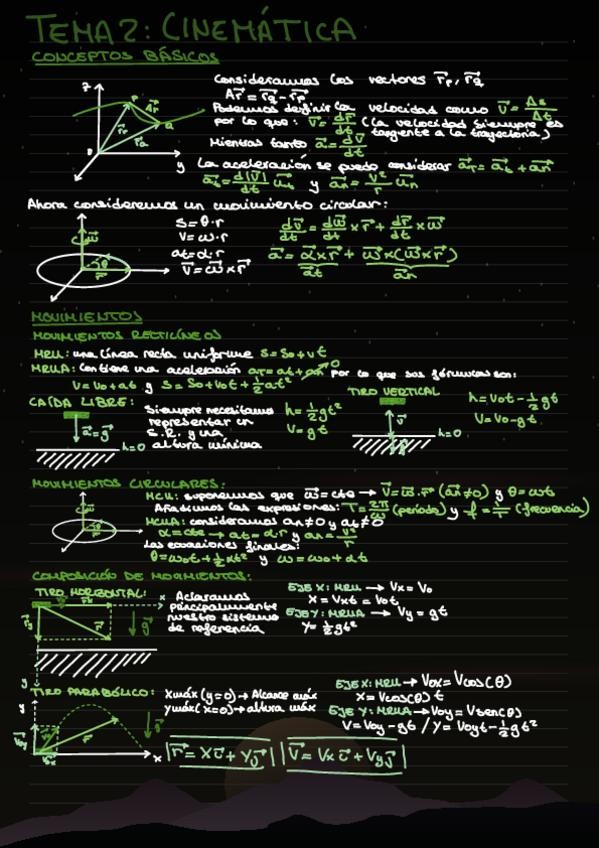 TEMA 2: CINEMÁTICA
CONCEPTOS BÁSICOS
Consideramos los vectores r⃗p, r⃗Q
Δr⃗ = r⃗Q - r⃗p
Podemos definir la velocidad como v⃗ = Δs/Δt
por lo que: v⃗ = dr⃗/dt (la velocidad siempre es
tangente a la trayectoria)
Mientras tanto a⃗ = dv⃗/dt
z
P
Δr⃗
Q
y
La aceleración se puede considerar a⃗T = a⃗t + a⃗n
a⃗t = d|v⃗|/dt u⃗t y a⃗n = v²/r u⃗n
Ahora consideremos un movimiento circular:
s = θ·r
v = ω·r
at = α·r
v⃗ = ω⃗ x r⃗
dv⃗/dt = dω⃗/dt x r⃗ + dr⃗/dt x ω⃗
a⃗ = α⃗ x r⃗ + ω⃗ x (ω⃗ x r⃗)
a⃗t a⃗n
MOVIMIENTOS
MOVIMIENTOS RECTILÍNEOS
MRU: una línea recta uniforme s = so + vt
MRUA: Contiene una aceleración aT = at + an 0 por lo que sus fórmulas son:
v = vo + at y s = so + vot + 1/2 at²
CAÍDA LIBRE:
a⃗ = g⃗
h=0
Siempre necesitamos
representar un
S.R. y una
altura mínima
h = 1/2 gt²
v = gt
TIRO VERTICAL
v⃗
h=0
h = vot - 1/2 gt
v = vo - gt
MOVIMIENTOS CIRCULARES:
MCU: suponemos que ω⃗ = cte → v⃗ = ω⃗·r⃗ (a⃗n ≠ 0) y θ = ωt
Añadimos las expresiones: T = 2π/ω (período) y f = 1/T (frecuencia)
MCUA: consideramos an ≠ 0 y at ≠ 0
α = cte → at = α·r y an = v²/r
Las ecuaciones finales:
θ = ωot + 1/2 αt² y ω = ωo + αt
COMPOSICIÓN DE MOVIMIENTOS:
TIRO HORIZONTAL:
x
g⃗
y
Aclaramos
principalmente
nuestro sistema
de referencia
EJE X: MRU → Vx = Vo
X = Vxt = Vot
EJE Y: MRUA → Vy = gt
Y = 1/2 gt²
TIRO PARABÓLICO:
y
g⃗
x
Xmáx (y=0) → Alcance máx
ymáx (x=0) → altura máx
EJE X: MRU → Vox = Vcos(θ)
X = Vcos(θ) t
EJE Y: MRUA → Voy = Vsen(θ)
V = Voy - gt / Y = Voyt - 1/2 gt²
r⃗ = X i⃗ + Y j⃗ V⃗ = Vx i⃗ + Vy j⃗